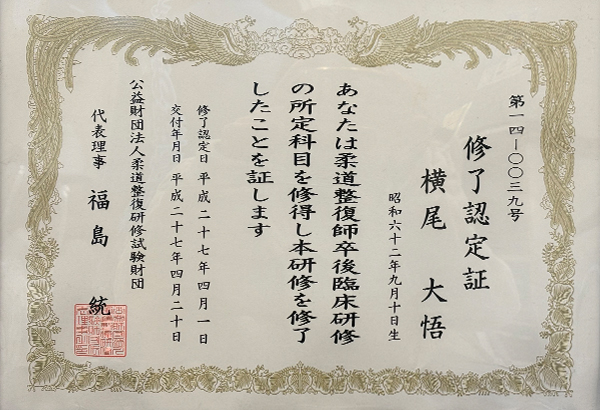 第一四－〇〇三九号
修了認定証
横尾 大悟
昭和六十二年九月十日生
あなたは柔道整復師卒後臨床研修
の所定科目を修得し本研修を修了
したことを証します
修了認定日 平成二十七年四月一日
交付年月日 平成二十七年四月二十日
公益財団法人柔道整復研修試験財団
代表理事 福島 統